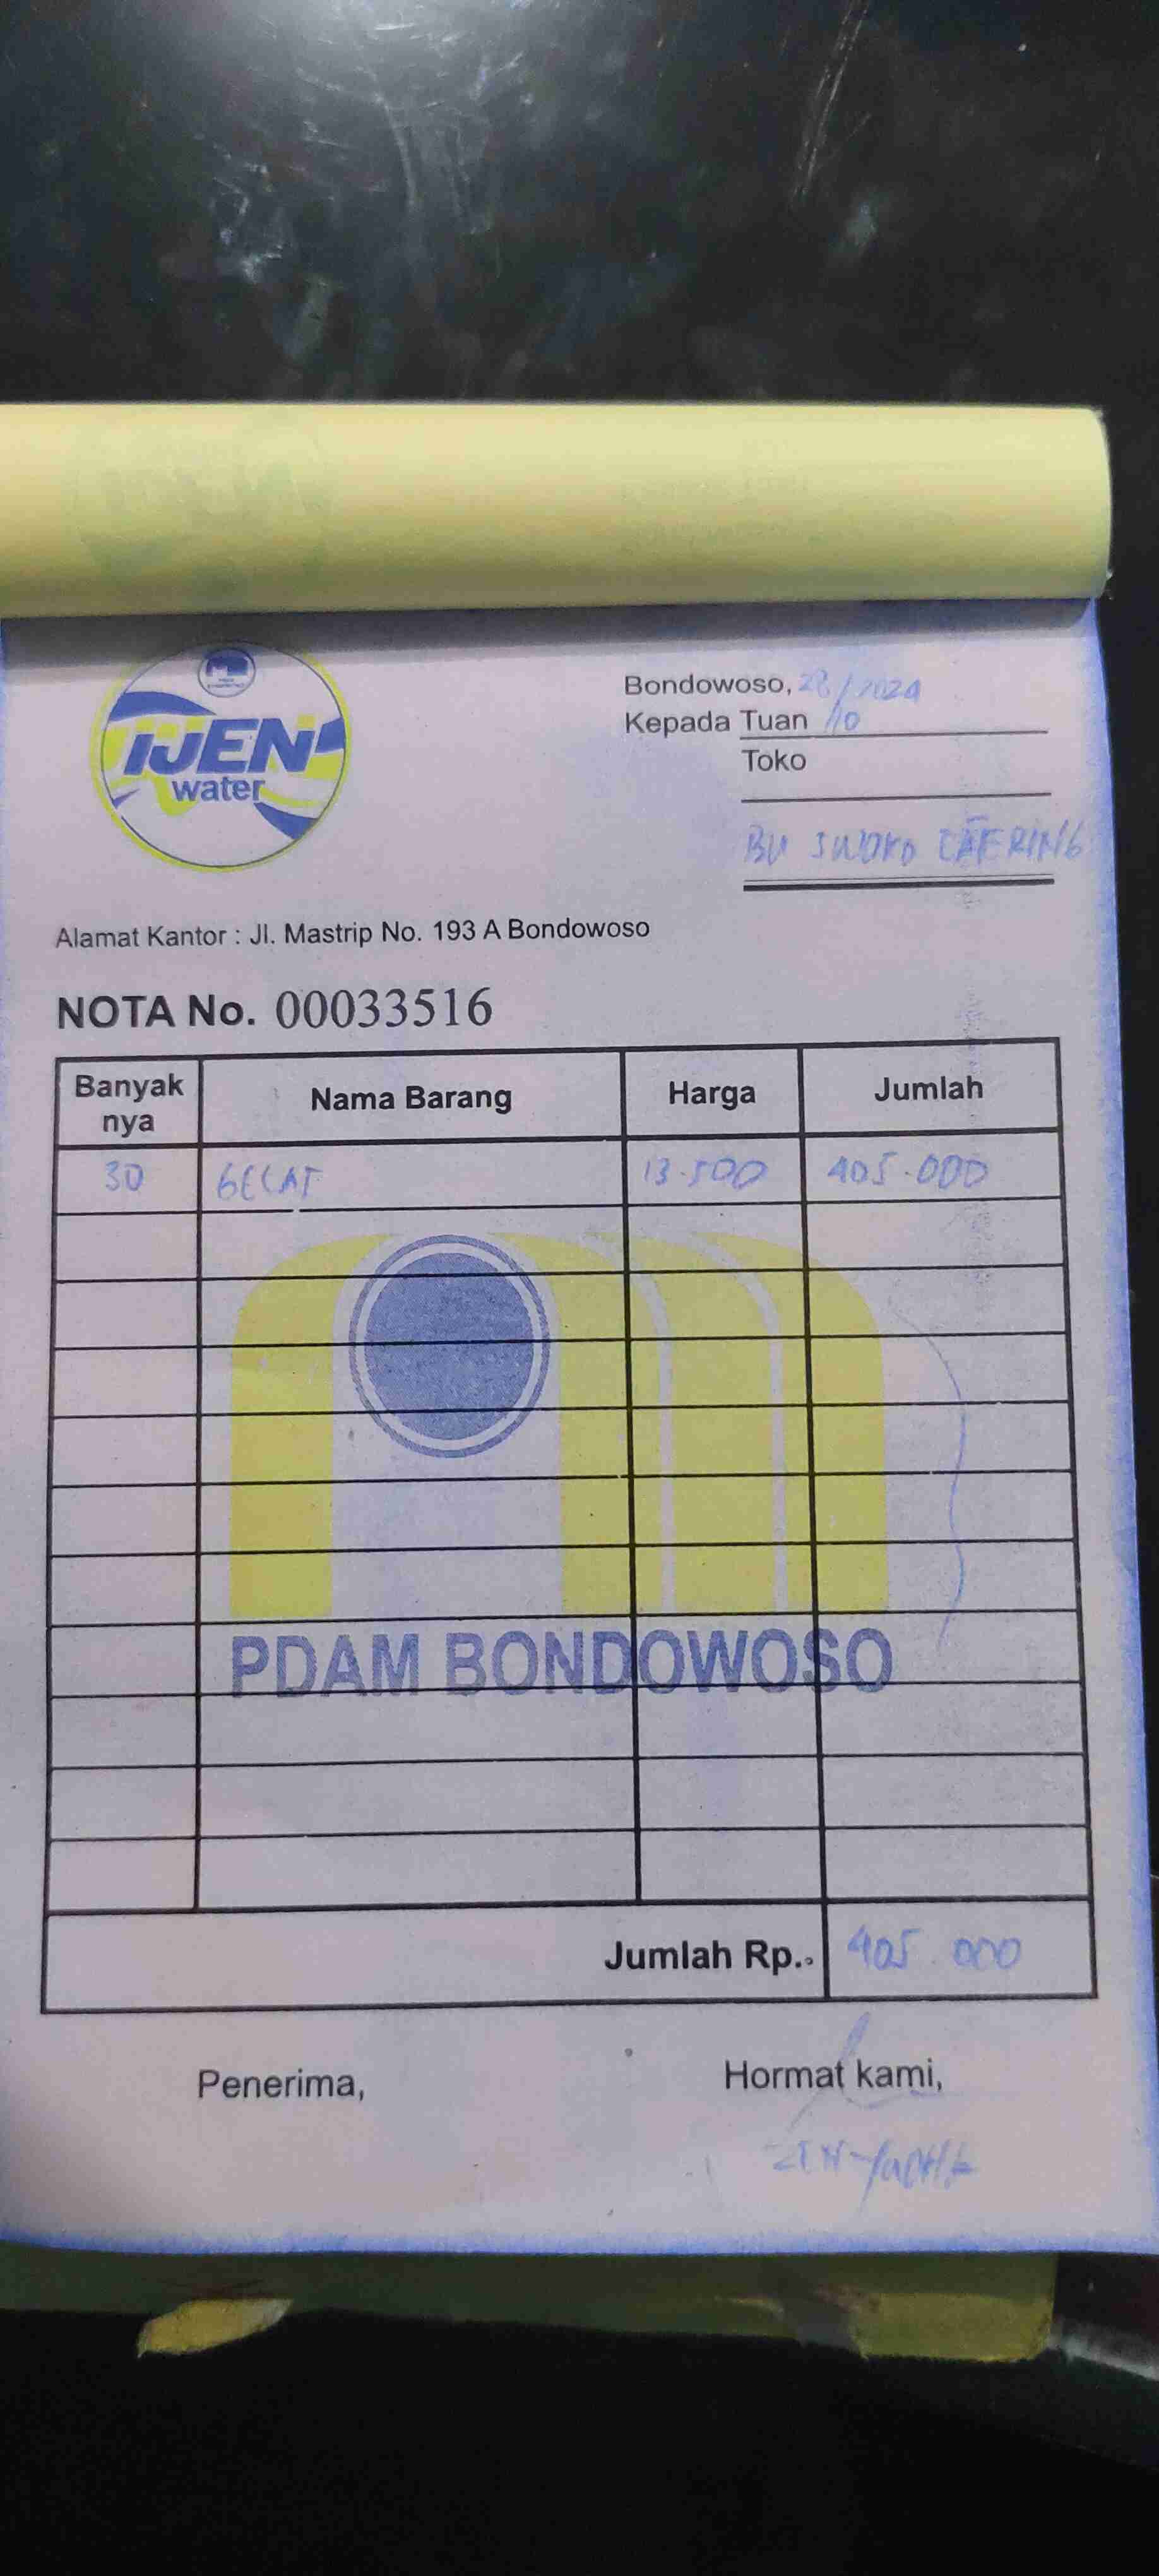 IJEN
water
Bondowoso, 28/10 2024
Kepada Tuan
Toko
BU SWOKO CATERING
Alamat Kantor : Jl. Mastrip No. 193 A Bondowoso
NOTA No. 00033516
Banyak nya Nama Barang Harga Jumlah
30 GELAS 13.500 405.000
PDAM BONDOWOSO
Jumlah Rp.. 405.000
Penerima, Hormat kami,